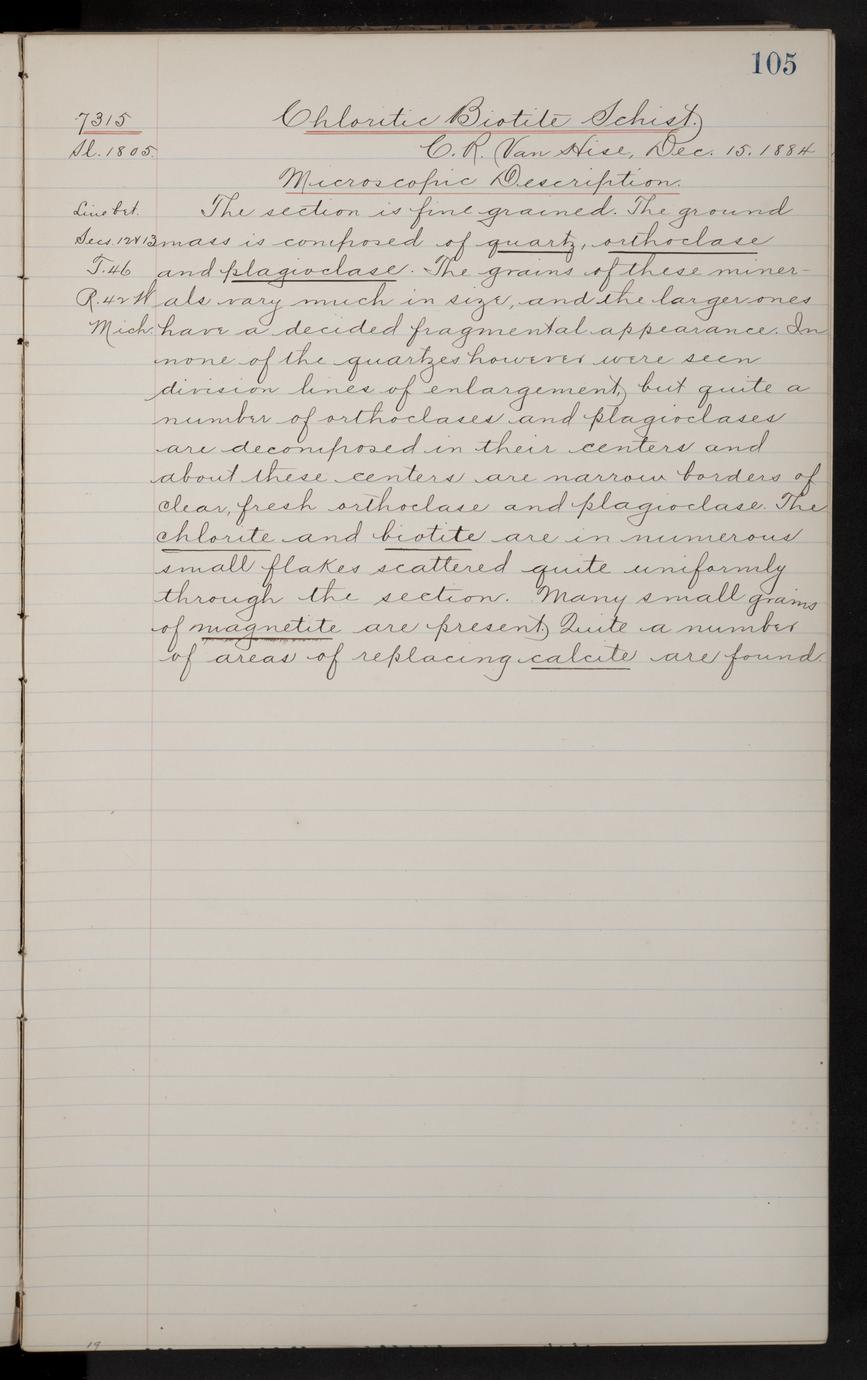 105
7315 Chloritic Biotite Schist.
Sl. 1805. C. R. Van Hise, Dec. 15. 1884.
Microscopic Description.
Line bet. The section is fine grained. The ground
Secs. 12 & 13 mass is composed of quartz, orthoclase
T. 46 and plagioclase. The grains of these miner-
R. 42 W als vary much in size, and the larger ones
Mich. have a decided fragmental appearance. In
none of the quartzes however were seen
division lines of enlargement, but quite a
number of orthoclases and plagioclases
are decomposed in their centers and
about these centers are narrow borders of
clear, fresh orthoclase and plagioclase. The
chlorite and biotite are in numerous
small flakes scattered quite uniformly
through the section. Many small grains
of magnetite are present. Quite a number
of areas of replacing calcite are found.
19